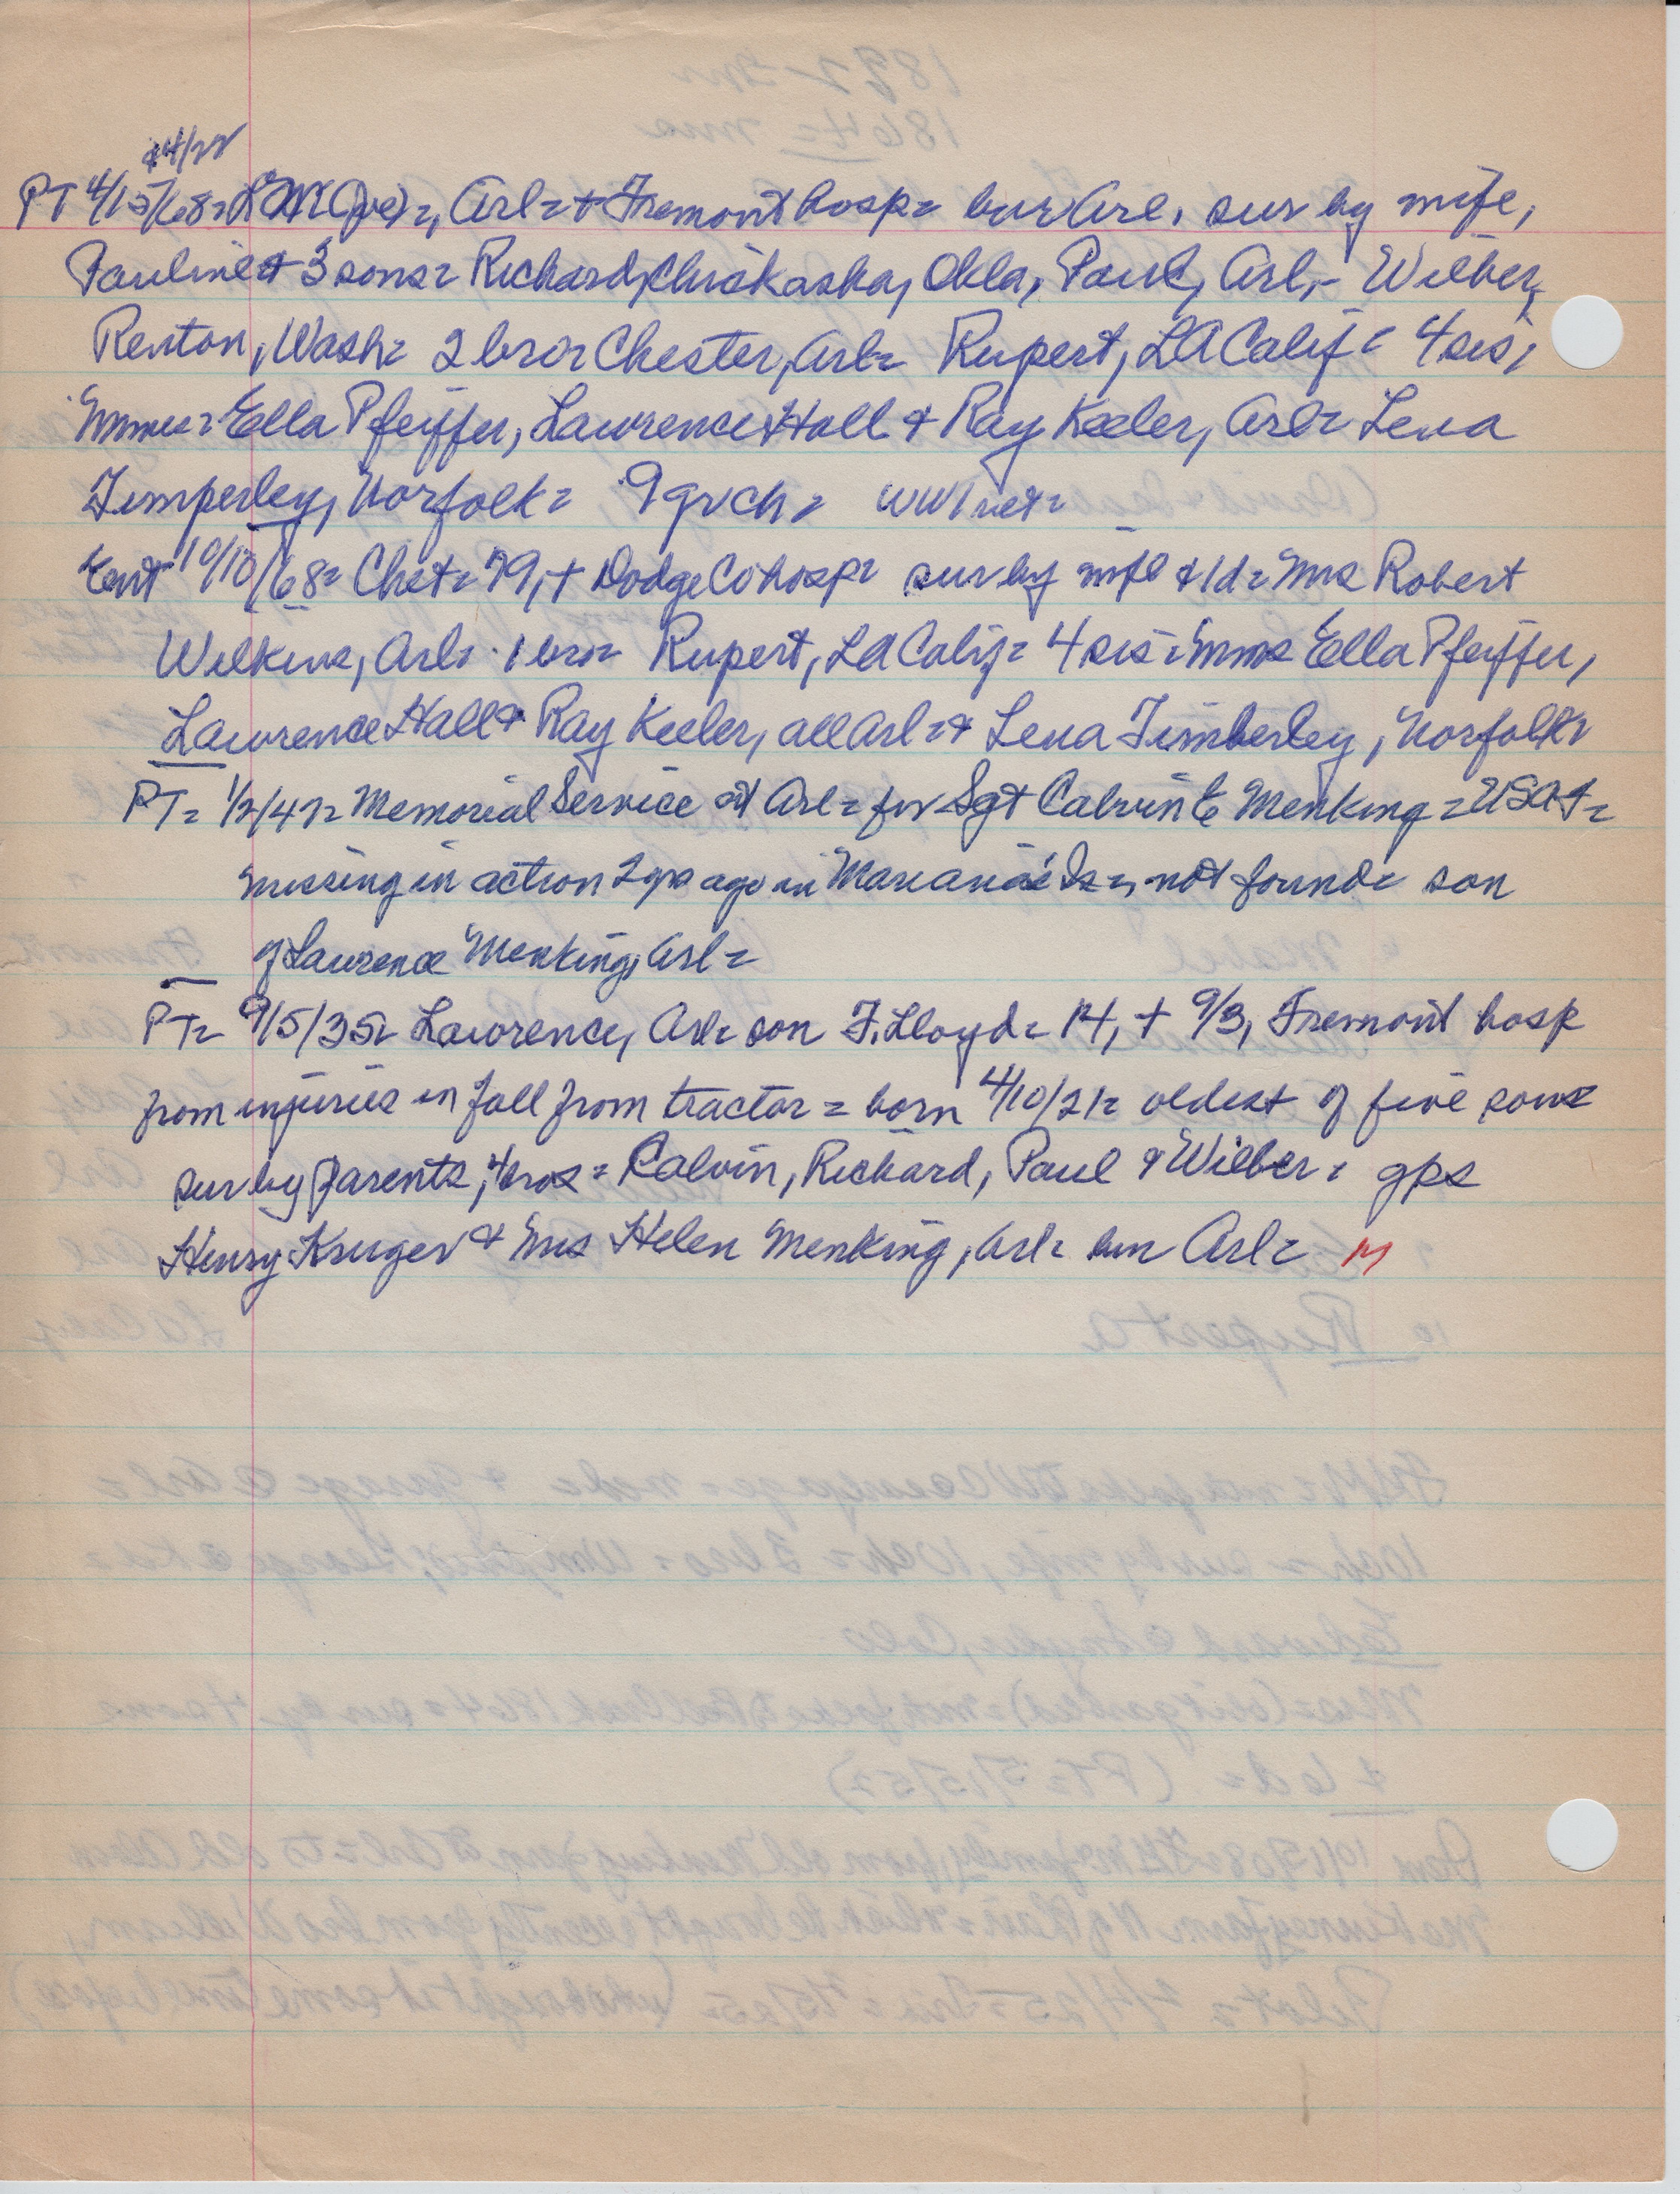 & 4/22
PT 4/15/68= LM (Joe)=, Arl= + Fremont hosp= bur Arl, sur by wife,
Pauline & 3 sons= Richard, Chickasha, Okla, Paul, Arl,- Wilber,
Renton, Wash= 2 bro= Chester, Arl= Rupert, LA Calif= 4 sis,
Mmes= Ella Pfeiffer, Lawrence Hall & Ray Keeler, Arl= Lena
Timperley, Norfolk= 9 grch= WWI vet=
Ent 10/10/68= Chet= 79, + Dodge Co hosp= sur by wife & 1d= Mrs Robert
Wilkins, Arl= 1 bro= Rupert, LA Calif= 4 sis= Mmes Ella Pfeiffer,
Lawrence Hall & Ray Keeler, all Arl= & Lena Timberley, Norfolk=
PT= 1/2/47= Memorial Service at Arl= for Sgt Calvin E Menking= USAF=
missing in action 2 yrs ago in Mariana Is=, not found= son
of Lawrence Menking, Arl=
PT= 9/5/35= Lawrence, Arl= son F. Lloyd= 14, + 9/3, Fremont hosp
from injuries in fall from tractor= born 4/10/21= oldest of five sons
sur by parents, 4 bros= Calvin, Richard, Paul & Wilber= gps
Henry Kruger & Mrs Helen Menking, Arl= bur Arl= M